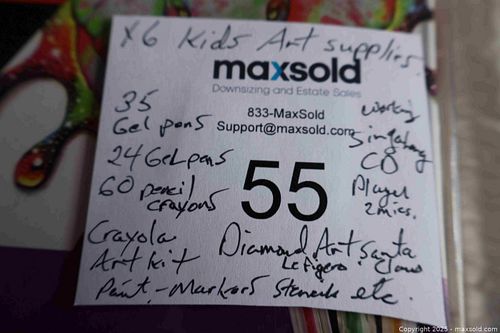 x6 Kids Art supplies
maxsold
Downsizing and Estate Sales
833-MaxSold
Support@maxsold.com
55
35
Gel pens
24 Gel pens
60 pencil
crayons
Crayola
Art Kit
Paint - Markers Stencils etc.
working
Singalong
CD
Player
2 mics.
Diamond Art Santa
Claus
Copyright 2025 - maxsold.com